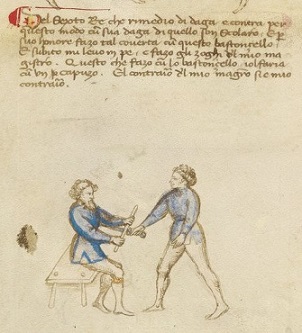 Del Sexto Re che rimedio di daga e contra per
questo modo cum sua daga di quello son Scolaro. E p
suo honore fazo tal coverta cum questo bastoncello.
E subito mi levo in pe, e fazo gli zoghi dl mio ma
gistro. Questo che fazo cum lo bastoncello, volsaria
cum un capuzo. El contrario dl mio magro si e mio
contraio.